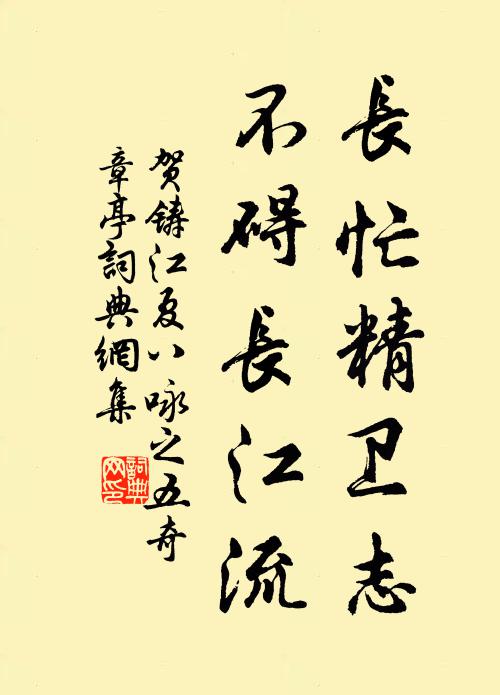 長忙精卫志
不碍長江流
贺鑄江夏八咏之五奇
章亭詞典網集
詞典
网印